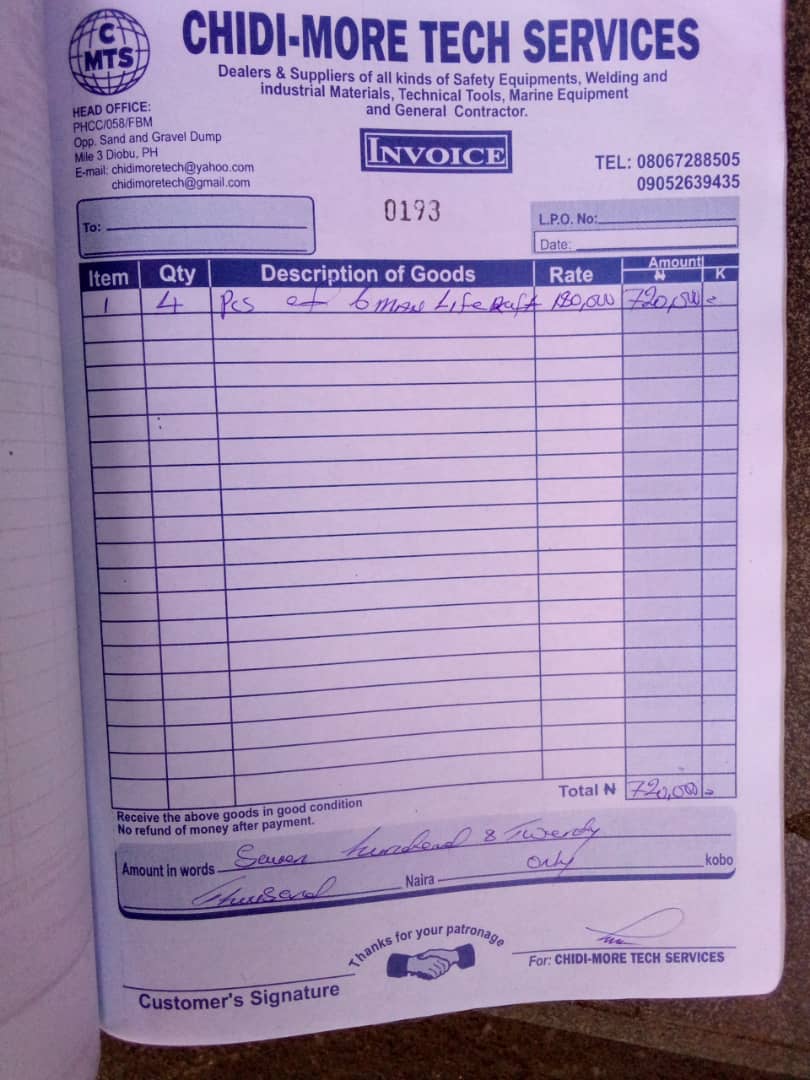 C
MTS
CHIDI-MORE TECH SERVICES
Dealers & Suppliers of all kinds of Safety Equipments, Welding and
industrial Materials, Technical Tools, Marine Equipment
and General Contractor.
HEAD OFFICE:
PHCC/058/FBM
Opp. Sand and Gravel Dump
Mile 3 Diobu, PH
E-mail: chidimoretech@yahoo.com
chidimoretech@gmail.com
INVOICE
TEL: 08067288505
09052639435
To:
0193
L.P.O. No:
Date:
Item Qty Description of Goods Rate Amount ₦ K
1 4 Pcs of 6 man Life Raft 180,000 720,000 =
Total ₦ 720,000 =
Receive the above goods in good condition
No refund of money after payment.
Amount in words Seven hundred & Twenty
Thousand Naira Only kobo
Thanks for your patronage
For: CHIDI-MORE TECH SERVICES
Customer's Signature